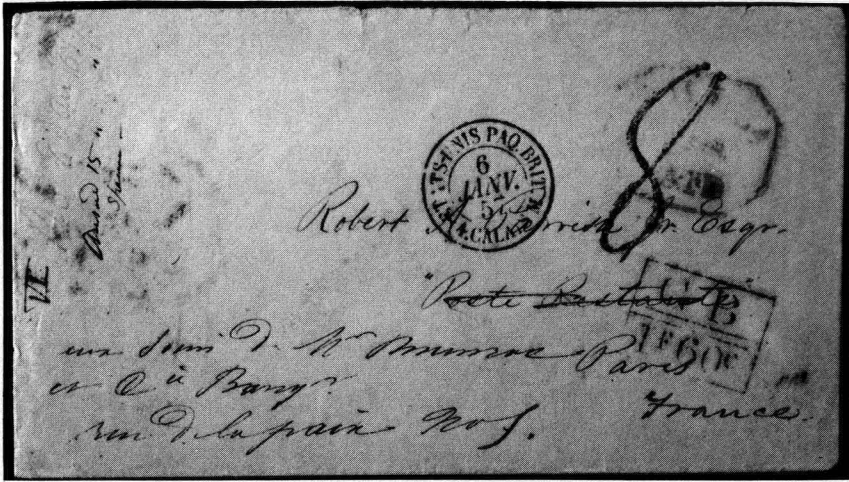 ETATS-UNIS PAQ. BRIT.
6
JANV.
CALAIS
8
Robert Jr. Esqr.
"Poste Restante"
G B
1F60C
aux soins de Mr Munroe Paris
et Co Banqr
rue de la paix No 5.
France.
15 "
VI